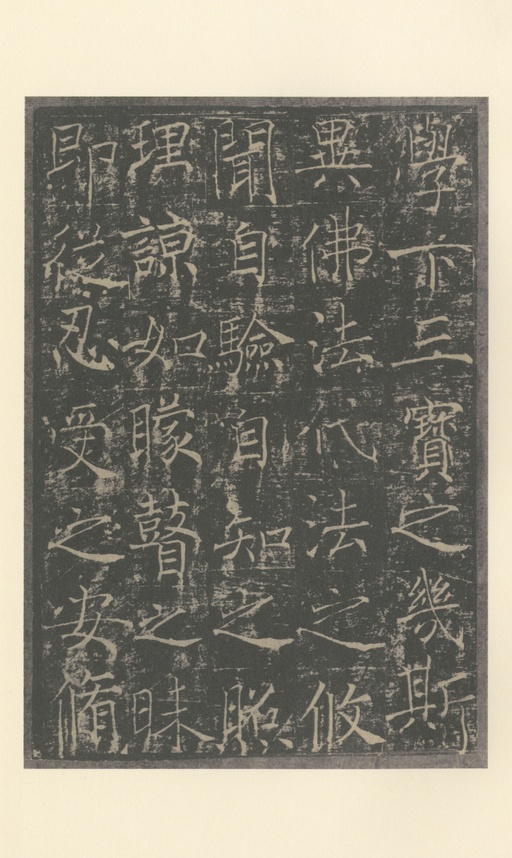 學亦三寶之幾斯
異佛法代法之攸
聞自驗自知之照
理諒如矇瞽之昧
即從忍受之安脩